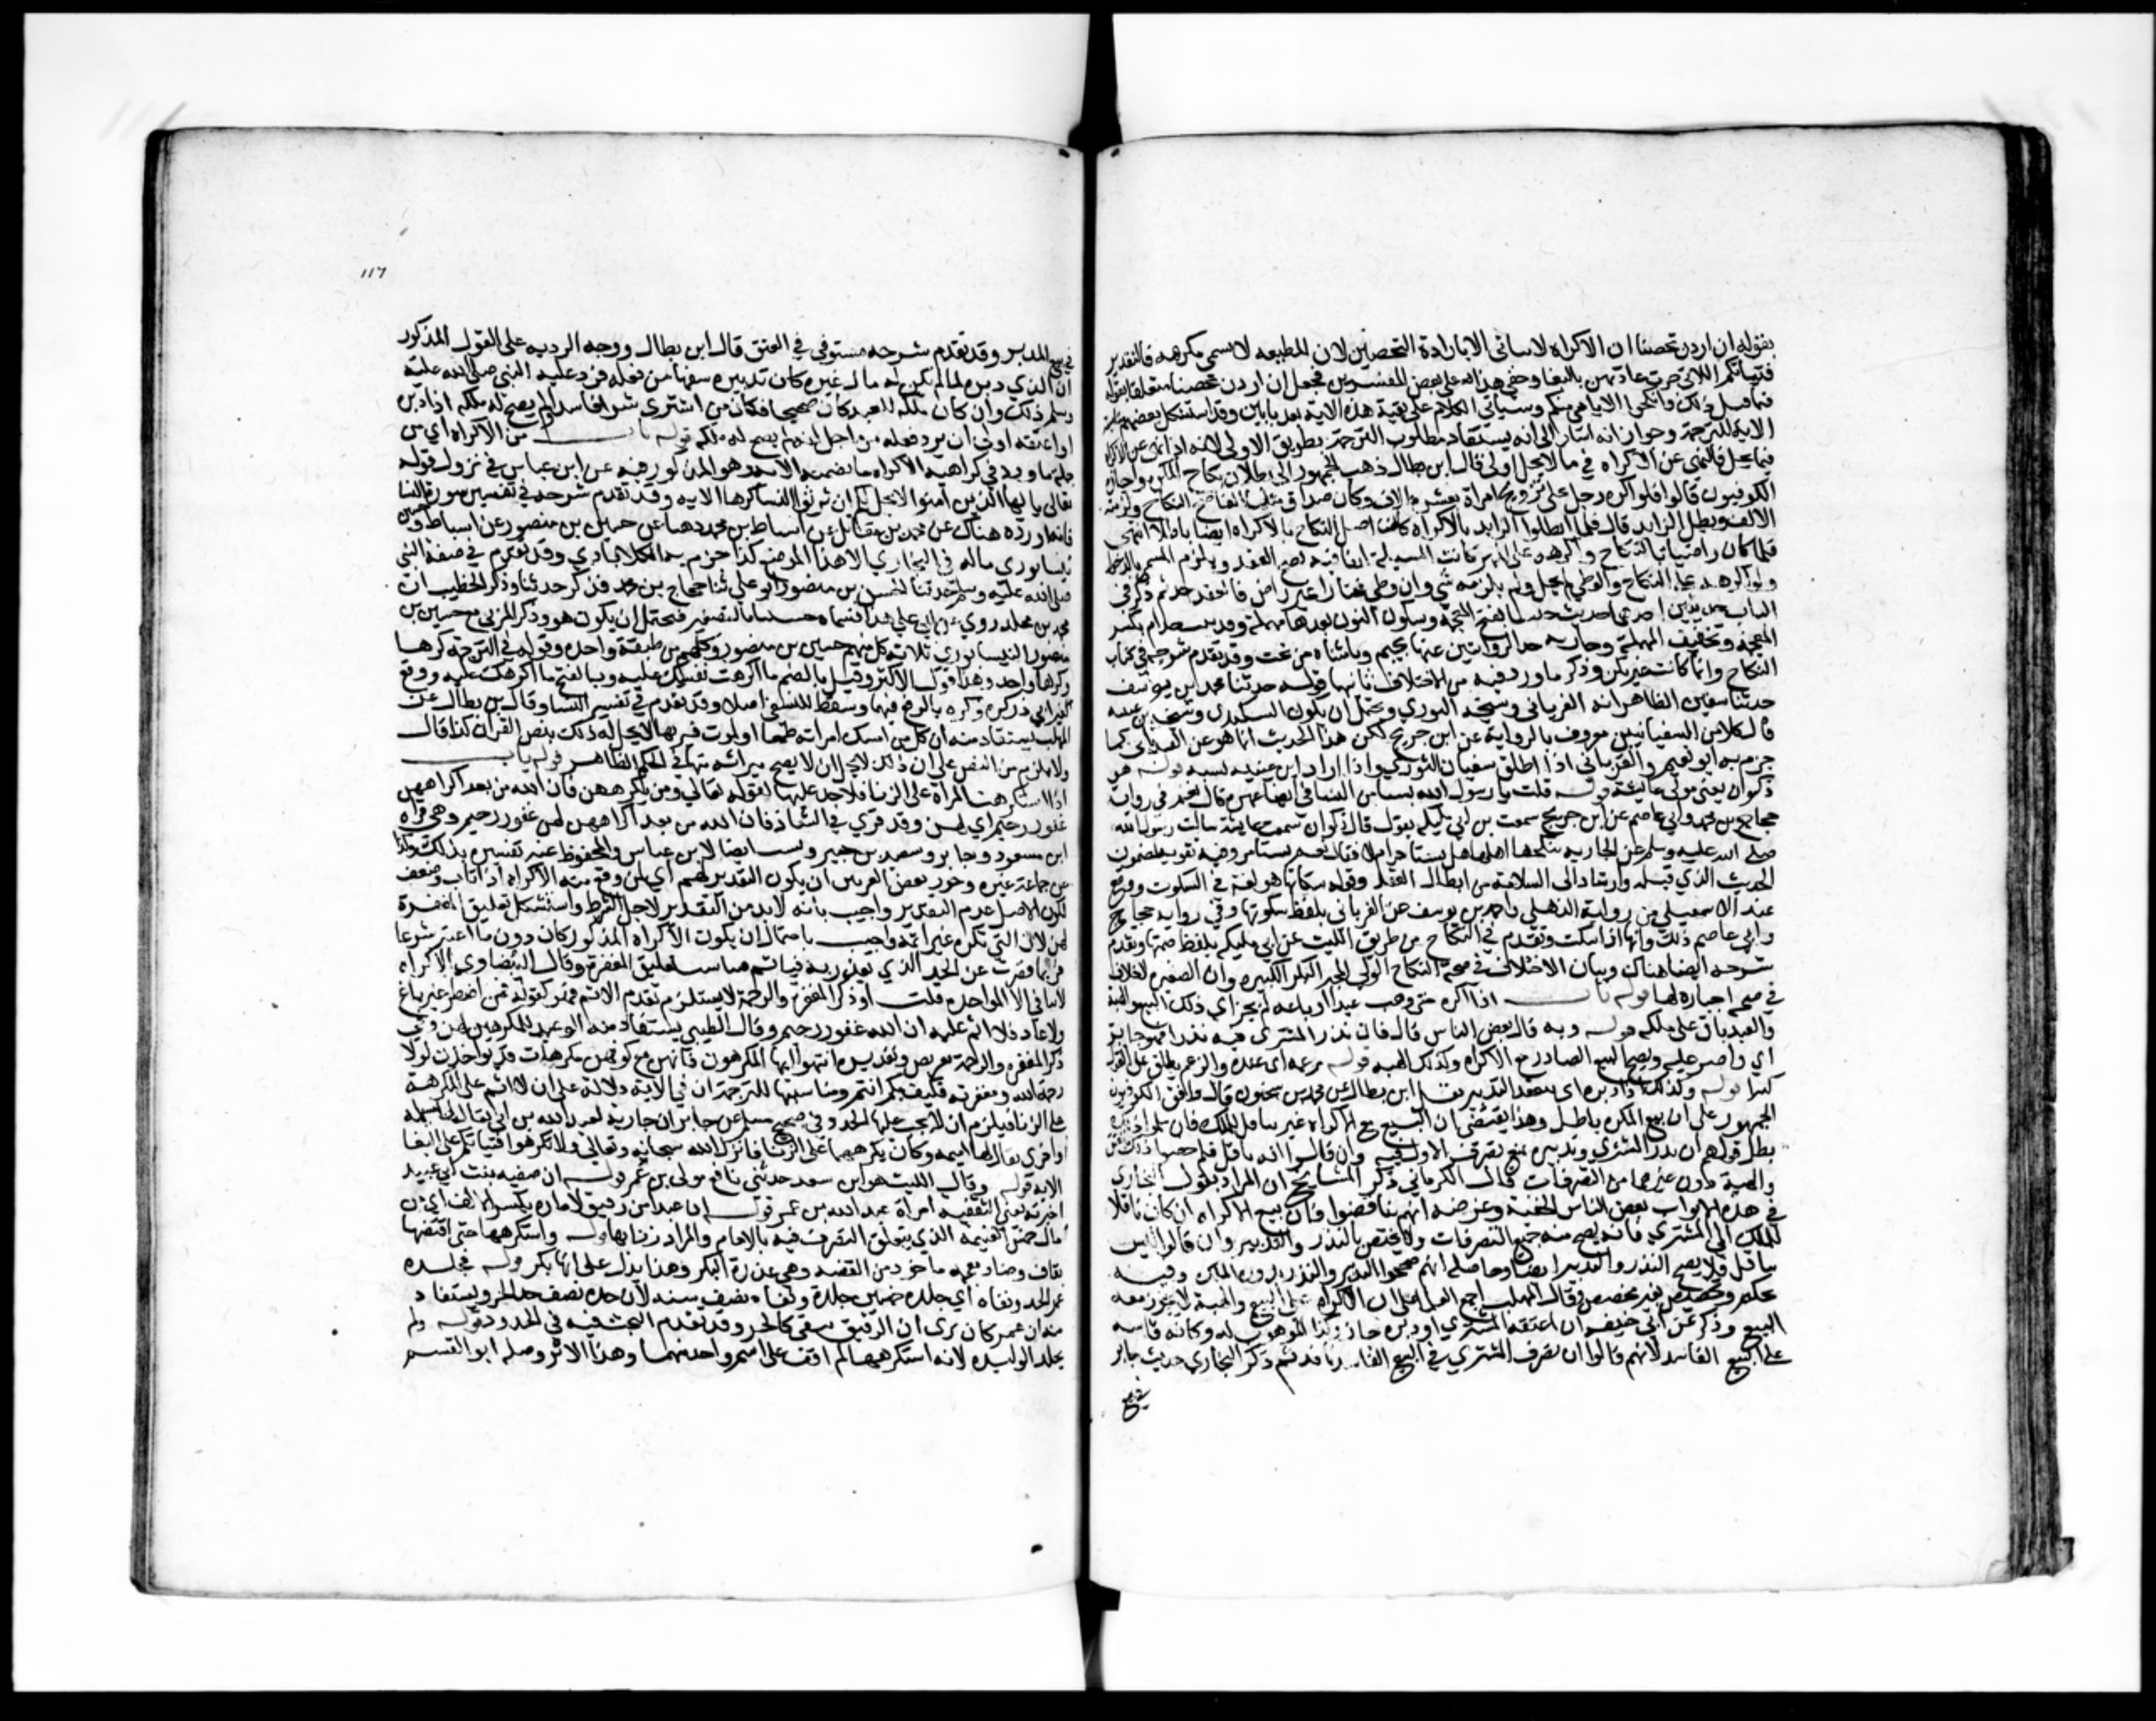 بقوله ان اردن تحصنا ان الاكراه لا يتاتى الا بارادة التحصين لان المطيعه لا تسمى مكرهه فالتقدير
فتياتكم اللاتي جرت عادتهن بالبغا وخفي هذا على بعض المفسرين فجعل ان اردن تحصنا متعلقا بقوله
فيما قبل ذلك وانكحوا الايامى منكم وسياتي الكلام على بقية هذه الاية بعد بابين وقد استشكل بعضهم
الاية للترجمة وجوازانه اشار الى انه يستفاد مطلوب الترجمة بطريق الاولى لانه اذا نهى عن الاكراه
فيما يحل فالنهي عن الاكراه في ما لا يحل اولى قال ابن بطال ذهب الجمهور الى بطلان نكاح المكره واجازه
الكوفيون قالوا فلو اكره رجل على تزويج امراة بعشرة الاف وكان صداق مثلها الفا صح النكاح ولزمته
الالف وبطل الزايد قال فلما ابطلوا الزايد بالاكراه كان اصل النكاح بالاكراه ايضا باطلا انتهى
فلما كان راضيا بالنكاح واكره على المهر كانت المسيلة اتفاقية يصح العقد ويلزم المسمى بالدخول
ولو اكره على النكاح والوطي لم يحد ولم يلزمه شي وان وطي مختارا غير راض فالعقد حد ثم ذكر في
الباب حديثين احدهما حديث خنسا بفتح المعجمة وسكون النون بعدها مهملة وقد بنت خدام بكسر
المعجمة وتخفيف المهملة وجارية جد الراويين عنها بجيم وياء مثناة من تحت وقد تقدم شرحه في كتاب
النكاح وانها كانت غير بكر وذكر ما ورد فيه من الاختلاف ثانيهما قوله حدثنا محمد بن يوسف
حدثنا سفين الظاهر انه الفريابي وشيخه الثوري ويحتمل ان يكون البيكندي وشيخه بن عيينه
فان كلا من السفيانين معروف بالرواية عن ابن جريج لكن هذا الحديث انما هو عن الفريابي كما
جزم به ابو نعيم والفريابي اذا اطلق سفيان اراد الثوري واذا اراد ابن عيينه نسبه قوله هو
ذكوان يعني مولى عايشة قوله قلت يا رسول الله تستامر النسا في ابضاعهن قال نعم في رواية
حجاج بن محمد وابي عاصم عن ابن جريج سمعت بن ابي مليكه يقول قال ذكوان سمعت عايشة سالت رسول الله
صلى الله عليه وسلم عن الجارية ينكحها اهلها هل تستامر ام لا فقال نعم تستامر وفيه تقوية لمضمون
الحديث الذي قبله وارشاد الى السلامة من ابطال العقد وقوله سكاتها هو لغة في السكوت ووقع
عند الاسمعيلي من رواية الذهلي واحمد بن يوسف عن الفريابي بلفظ سكوتها وفي رواية حجاج
وابي عاصم ذلك اذنها اذا سكتت وتقدم في النكاح من طريق الليث عن ابي مليكه بلفظ صمتها وتقدم
شرحه ايضا هناك وبيان الاختلاف في صحة انكاح الولي المجبر البكر الكبيره وان الصغيره لا خلاف
في صحة اجباره لها قوله باب اذا اكره حتى وهب عبدا او باعه لم يجز اي ذلك البيع والهبة
والعبد باق على ملكه قوله وبه قال بعض الناس قال فان نذر المشتري فيه نذرا فهو جايز
اي ماض عليه ويصح البيع الصادر مع الاكراه وكذلك الهبه قوله بزعمه اي عنده والزعم يطلق على القول
كثيرا قوله وكذلك ان دبره اي ينعقد التدبير نقل ابن بطال عن محمد بن سحنون قال وافق الكوفيون
الجمهور على ان بيع المكره باطل وهذا يقتضي ان البيع مع الاكراه غير ناقل للملك فان سلموا ذلك
بطل قولهم ان نذر المشتري وتدبيره يمنع تصرف الاول فيه وان قالوا انه ناقل فلم خصوا ذلك
والهبة دون غيرهما من التصرفات قال الكرماني ذكر المشايخ ان المراد بقول البخاري
في هذه الابواب بعض الناس الحنفية وغرضه انهم تناقضوا فان بيع الاكراه ان كان ناقلا
للملك الى المشتري فانه يصح منه جميع التصرفات ولا يختص بالنذر والتدبير وان قالوا ليس
بناقل فلا يصح النذر والتدبير ايضا وحاصله انهم صححوا التدبير والنذر بدون الملك وفيه
تحكم وتخصيص بغير مخصص وقال المهلب اجمع العلما على ان الاكراه على البيع والهبة لا يجوز معه
البيع وذكر عن ابي حنيفه ان اعتقه المشتري او دبره جاز وكذا الموهوب له وكانه قاسه
على البيع الفاسد لانهم قالوا ان تصرف المشتري في البيع الفاسد نافذ ثم ذكر البخاري حديث جابر
في بيع
١١٦
في بيع المدبر وقد تقدم شرحه مستوفى في العتق قال ابن بطال ووجه الرد به على القول المذكور
ان الذي دبره لما لم يكن له مال غيره كان تدبيره سفها من فعله فرد عليه النبي صلى الله عليه
وسلم ذلك وان كان ملكه للعبد كان صحيحا فكان من اشترى شرا فاسدا ولم يصح له ملكه اذا دبره
او اعتقه اولى ان يرد فعله من اجل انه لم يصح له ملكه قوله باب من الاكراه اي من
جملة ما ورد في كراهية الاكراه ما تضمنته الاية وهو المذكور فيه عن ابن عباس في نزول قوله
تعالى يا ايها الذين امنوا لا يحل لكم ان ترثوا النسا كرها الايه وقد تقدم شرحه في تفسير سورة النسا
فانه اورده هناك عن محمد بن مقاتل عن اسباط بن محمد وهنا عن حسين بن منصور عن اسباط وحسين
نيسابوري ماله في البخاري الا هذا الموضع كذا جزم به الكلاباذي وقد تقدم في صفة النبي
صلى الله عليه وسلم حدثنا الحسن بن منصور ابو علي ثنا حجاج بن محمد فذكر حديثا وذكر الخطيب ان
محمد بن مخلد روي عن ابي علي هذا فسماه حسينا بالتصغير فيحتمل ان يكون هو وذكر المزي مع حسين بن
منصور النيسابوري ثلاثة كل منهم حسين بن منصور وكلهم من طبقة واحدة وقوله في الترجمة كرها
وكرها واحد وهذا قول الاكثر وقيل بالضم ما اكرهت نفسك عليه وبالفتح ما اكرهك عليه ووقع
لغير ابي ذر كره وكره بالرفع فيهما وسقط للنسفي اصلا وقد تقدم في تفسير النسا وقال بن بطال عن
المهلب يستفاد منه ان كل من امسك امراته طمعا ان تموت فيرثها لا يحل له ذلك بنص القران كذا قال
ولا يلزم من النص على ان ذلك لا يحل ان لا يصح ميراثه منها في الحكم الظاهر قوله باب
اذا استكرهت المراة على الزنا فلا حد عليها لقوله تعالى ومن يكرههن فان الله من بعد اكراههن
غفور رحيم اي لهن وقد قري في الشاذ فان الله من بعد اكراههن لهن غفور رحيم وهي قراة
ابن مسعود وجابر وسعيد بن جبير ونسبت ايضا لابن عباس والمحفوظ عنه تفسيره بذلك وكذا
عن جماعة غيره وجوز بعض المعربين ان يكون التقدير لهم اي لمن وقع منه الاكراه اذا تاب وضعف
لكون الاصل عدم التقدير واجيب بانه لا بد من التقدير لاجل الشرط واستشكل تعليق المغفرة
لهن لان التي تكره غير اثمة واجيب باحتمال ان يكون الاكراه المذكور كان دون ما اعتبر شرعا
فربما قصرت عن الحد الذي تعذر به فياثم فناسب تعليق المغفرة وقال البيضاوي الاكراه
لا ينافي المواخذة قلت او ذكر المغفرة والرحمة لا يستلزم تقدم الاثم فهو كقوله فمن اضطر غير باغ
ولا عاد فلا اثم عليه ان الله غفور رحيم وقال الطيبي يستفاد منه الوعيد للمكرهين لهن وفي
ذكر المغفرة والرحمة تعريض وتقديره انتهوا ايها المكرهون فانهن مع كونهن مكرهات قد يواخذن لولا
رحمة الله ومغفرته فكيف بكم انتم ومناسبتها للترجمة ان في الاية دلالة على ان لا اثم على المكرهة
على الزنا فيلزم ان لا يجب عليها الحد وفي صحيح مسلم عن جابر ان جارية لعبد الله بن ابي يقال لها مسيكه
واخرى يقال لها اميمه وكان يكرههما على الزنا فانزل الله سبحانه وتعالى ولا تكرهوا فتياتكم على البغا
الايه قوله وقال الليث هو ابن سعد حدثني نافع مولى بن عمر قوله ان صفيه بنت ابي عبيد
اخبرته يعني الثقفيه امراة عبد الله بن عمر قوله ان عبدا من رقيق الاماره بكسر الالف اي من
مال خمس الغنيمة الذي يتعلق التصرف فيه بالامام والمراد زنا بها قوله واستكرهها حتى اقتضها
بقاف وضاد معجمه ماخوذ من القضه وهي عذرة البكر وهذا يدل على انها بكر قوله فجلده
عمر الحد ونفاه اي جلده خمسين جلدة ونفاه نصف سنه لان حده نصف حد الحر ويستفاد
منه ان عمر كان يرى ان الرقيق ينفى كالحر وقد تقدم البحث فيه في الحدود قوله ولم
يجلد الوليده لانه استكرهها لم اقف على اسم واحد منهما وهذا الاثر وصله ابو القسم